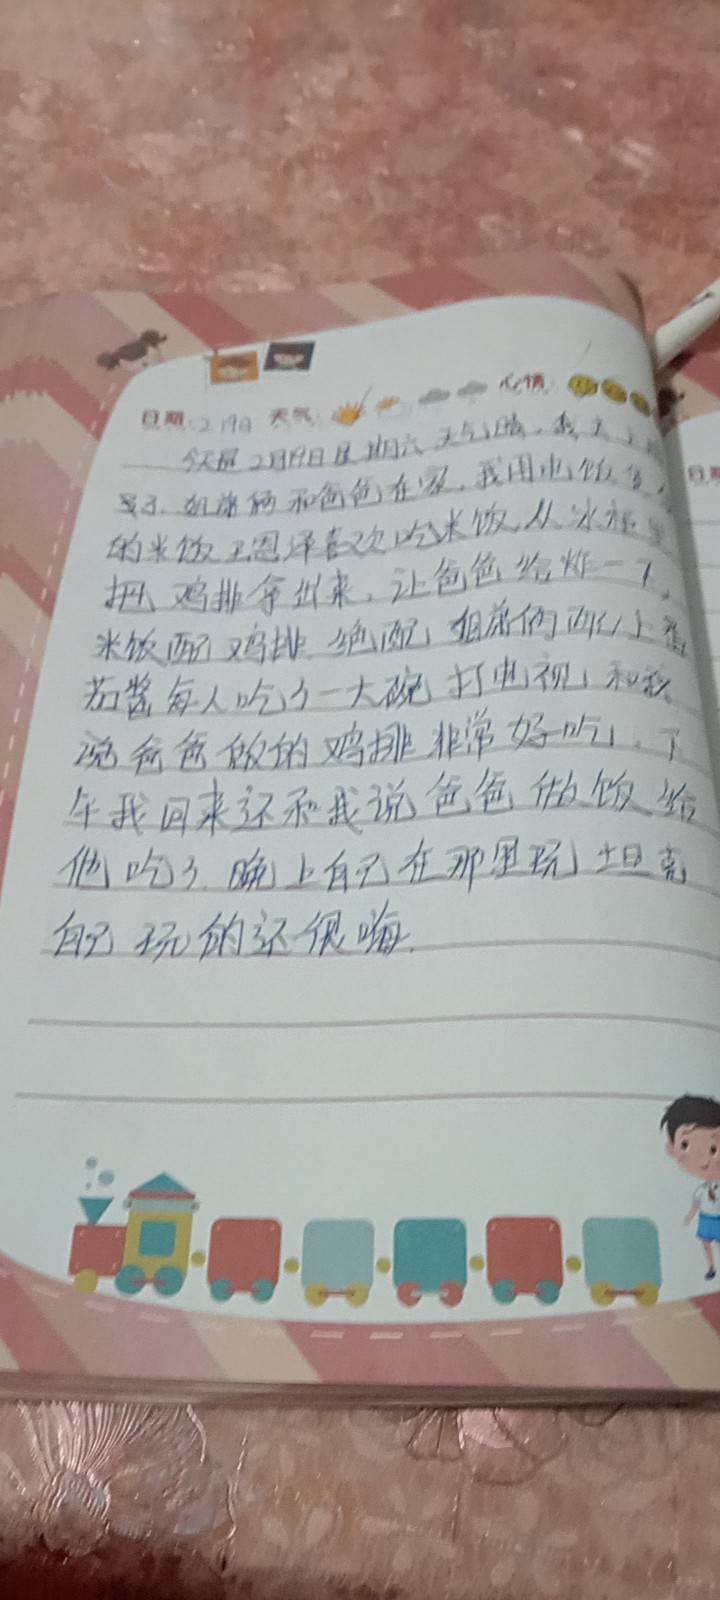 日期:2.19日 天气: 心情:
今天是2月19日星期六天气晴.我去上
了.姐弟俩和爸爸在家.我用电饭
的米饭王恩泽喜欢吃米饭,从冰箱里
把鸡排拿出来.让爸爸给炸一下,
米饭配鸡排.绝配,姐弟俩配上番
茄酱每人吃了一大碗打电视,和我
说爸爸做的鸡排非常好吃,.下
午我回来还和我说爸爸做饭给
他吃了.晚上自己在那里玩坦克
自己玩的还很嗨.
日期